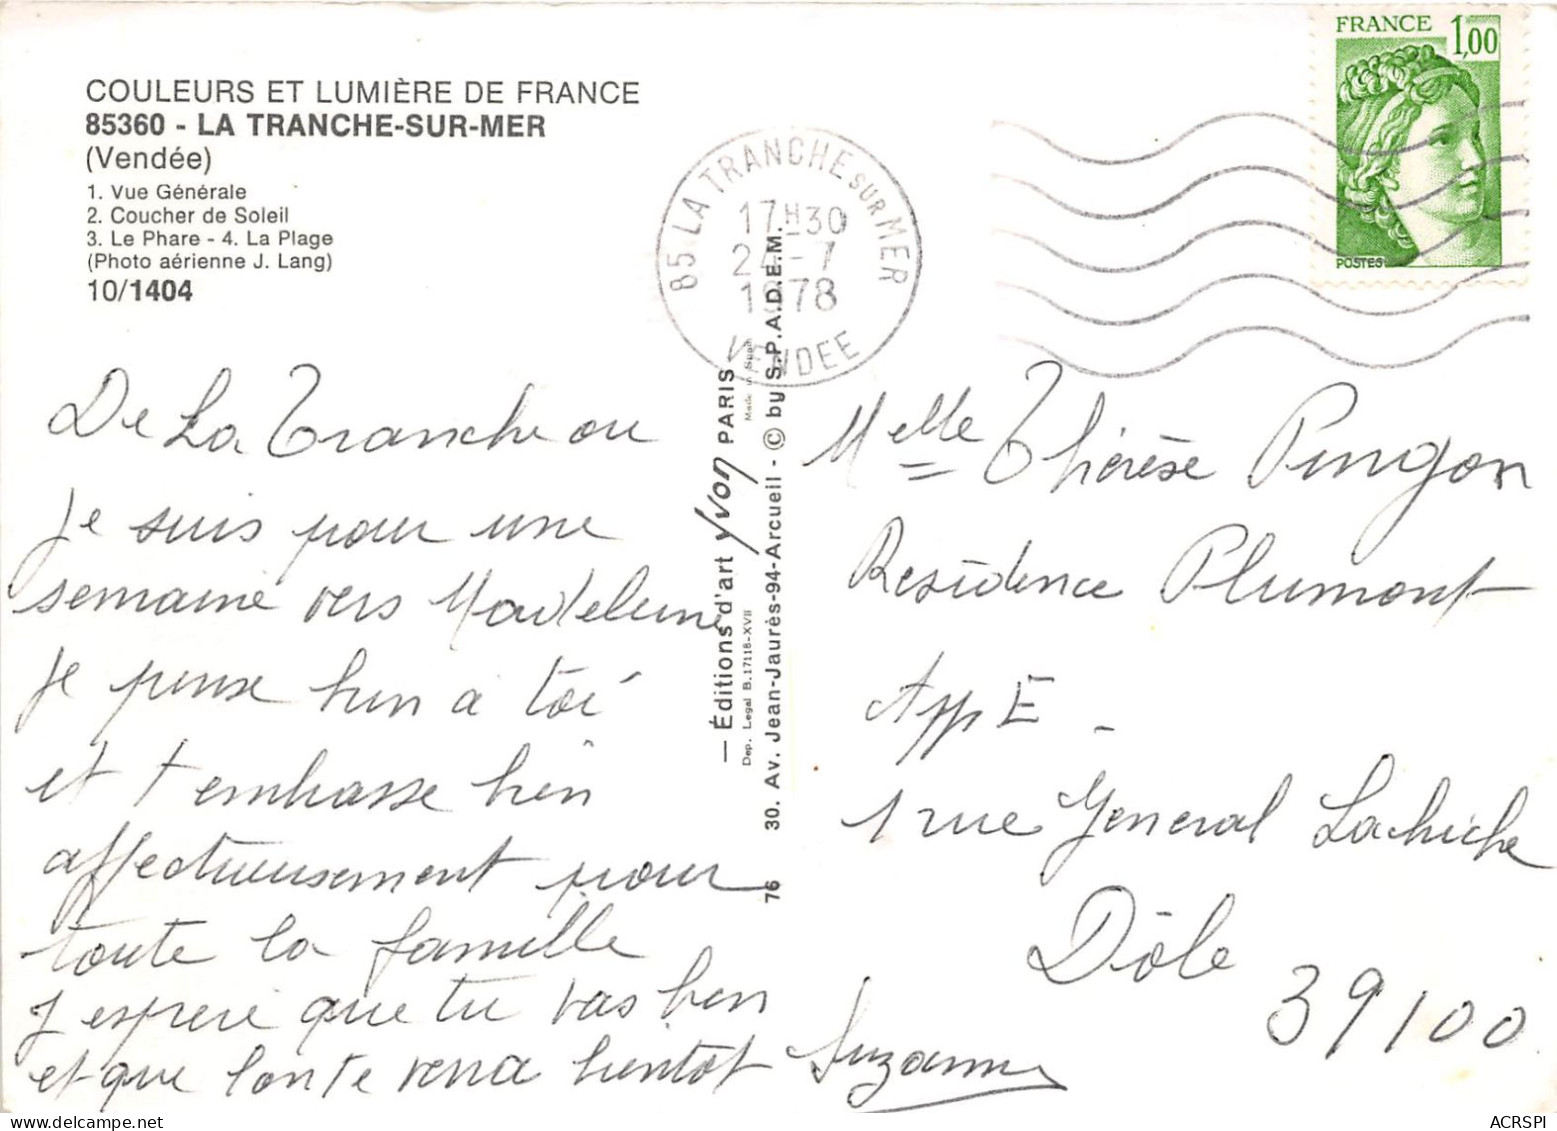 COULEURS ET LUMIÈRE DE FRANCE
85360 - LA TRANCHE-SUR-MER
(Vendée)
1. Vue Générale
2. Coucher de Soleil
3. Le Phare - 4. La Plage
(Photo aérienne J. Lang)
10/1404
85 LA TRANCHE SUR MER
17H30
24-7
1978
VENDEE
FRANCE 1,00
POSTES
De La Tranche ou
Je suis pour une
semaine vers Madeleine
Je pense bien a toi
et t'embrasse bien
affectueusement pour
toute la famille
J'espere que tu vas bien
et que l'on te verra bientôt Suzanne
— Éditions d'art Yvon PARIS
Made in Spain
Dep. Legal B. 17116-XVII
76 30. Av. Jean-Jaurès-94-Arcueil - © by S.P.A.D.E.M.
Melle Thérèse Pingon
Residence Plumont
App E -
1 rue General Lachiche
Dôle
39100
ACRSPI